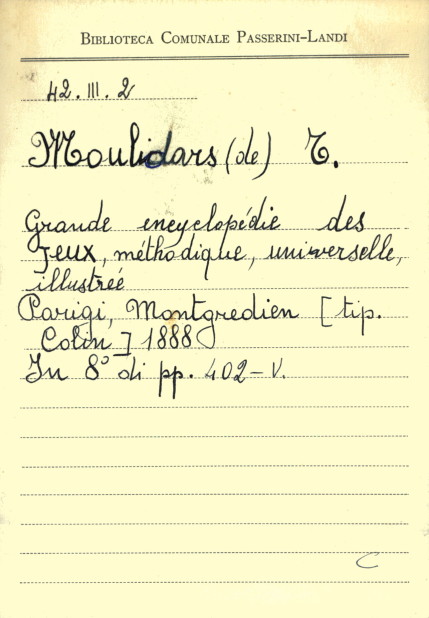 BIBLIOTECA COMUNALE PASSERINI-LANDI
42.III.2
Moulidars (de) T.
Grande encyclopédie des
Jeux, méthodique, universelle,
illustrée
Parigi, Montgredien [tip.
Colin] 1888
In 8° di pp. 402-V.
C